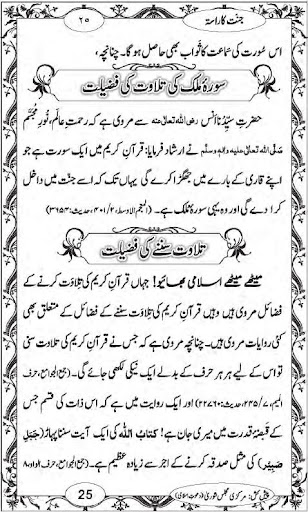 جنت کا راستہ ۲۵
اس سُورت کی سماعت کا ثواب بھی حاصل ہوگا۔ چنانچہ،
سورۂ مُلک کی تلاوت کی فضیلت
حضرتِ سیِّدُنا اَنَس رضی اللہ تعالٰی عنہ سے مروی ہے کہ رحمتِ عالَم، نورِ مُجَسَّم
صلی اللہ تعالٰی علیہ واٰلہٖ وسلم نے ارشاد فرمایا: قرآنِ کریم میں ایک سورت ہے جو
اپنے قاری کے بارے میں جھگڑا کرے گی یہاں تک کہ اسے جنّت میں داخل
کرا دے گی اور وہ یہی سورۂ مُلک ہے۔ (المعجم الاوسط، ۲/ ۴۰۱، حدیث: ۳۶۵۴)
تلاوت سننے کی فضیلت
میٹھے میٹھے اسلامی بھائیو! جہاں قرآنِ کریم کی تلاوت کرنے کے
فضائل مروی ہیں وہیں قرآنِ کریم کی تلاوت سننے کے فضائل کے متعلق بھی
کئی روایات مروی ہیں۔ چنانچہ مروی ہے کہ جس نے قرآنِ کریم کی تلاوت سنی
تو اس کے لیے ہر ہر حرف کے بدلے ایک نیکی لکھی جائے گی۔ (جمع الجوامع، حرف
المیم، ۷/ ۲۳۵، حدیث: ۲۲۷۶۰) اور ایک روایت میں ہے کہ اس ذات کی قسم جس
کے قبضۂ قدرت میں میری جان ہے! کتابُ اللہ کی ایک آیت سننا پہاڑ (جَبَلِ
صَبِیْر) کی مثل صدقہ کرنے کے اجر سے زیادہ عظیم ہے۔ (جمع الجوامع، حرف الواو، ۸
پیش کش: مرکزی مجلسِ شوریٰ (دعوتِ اسلامی) 25